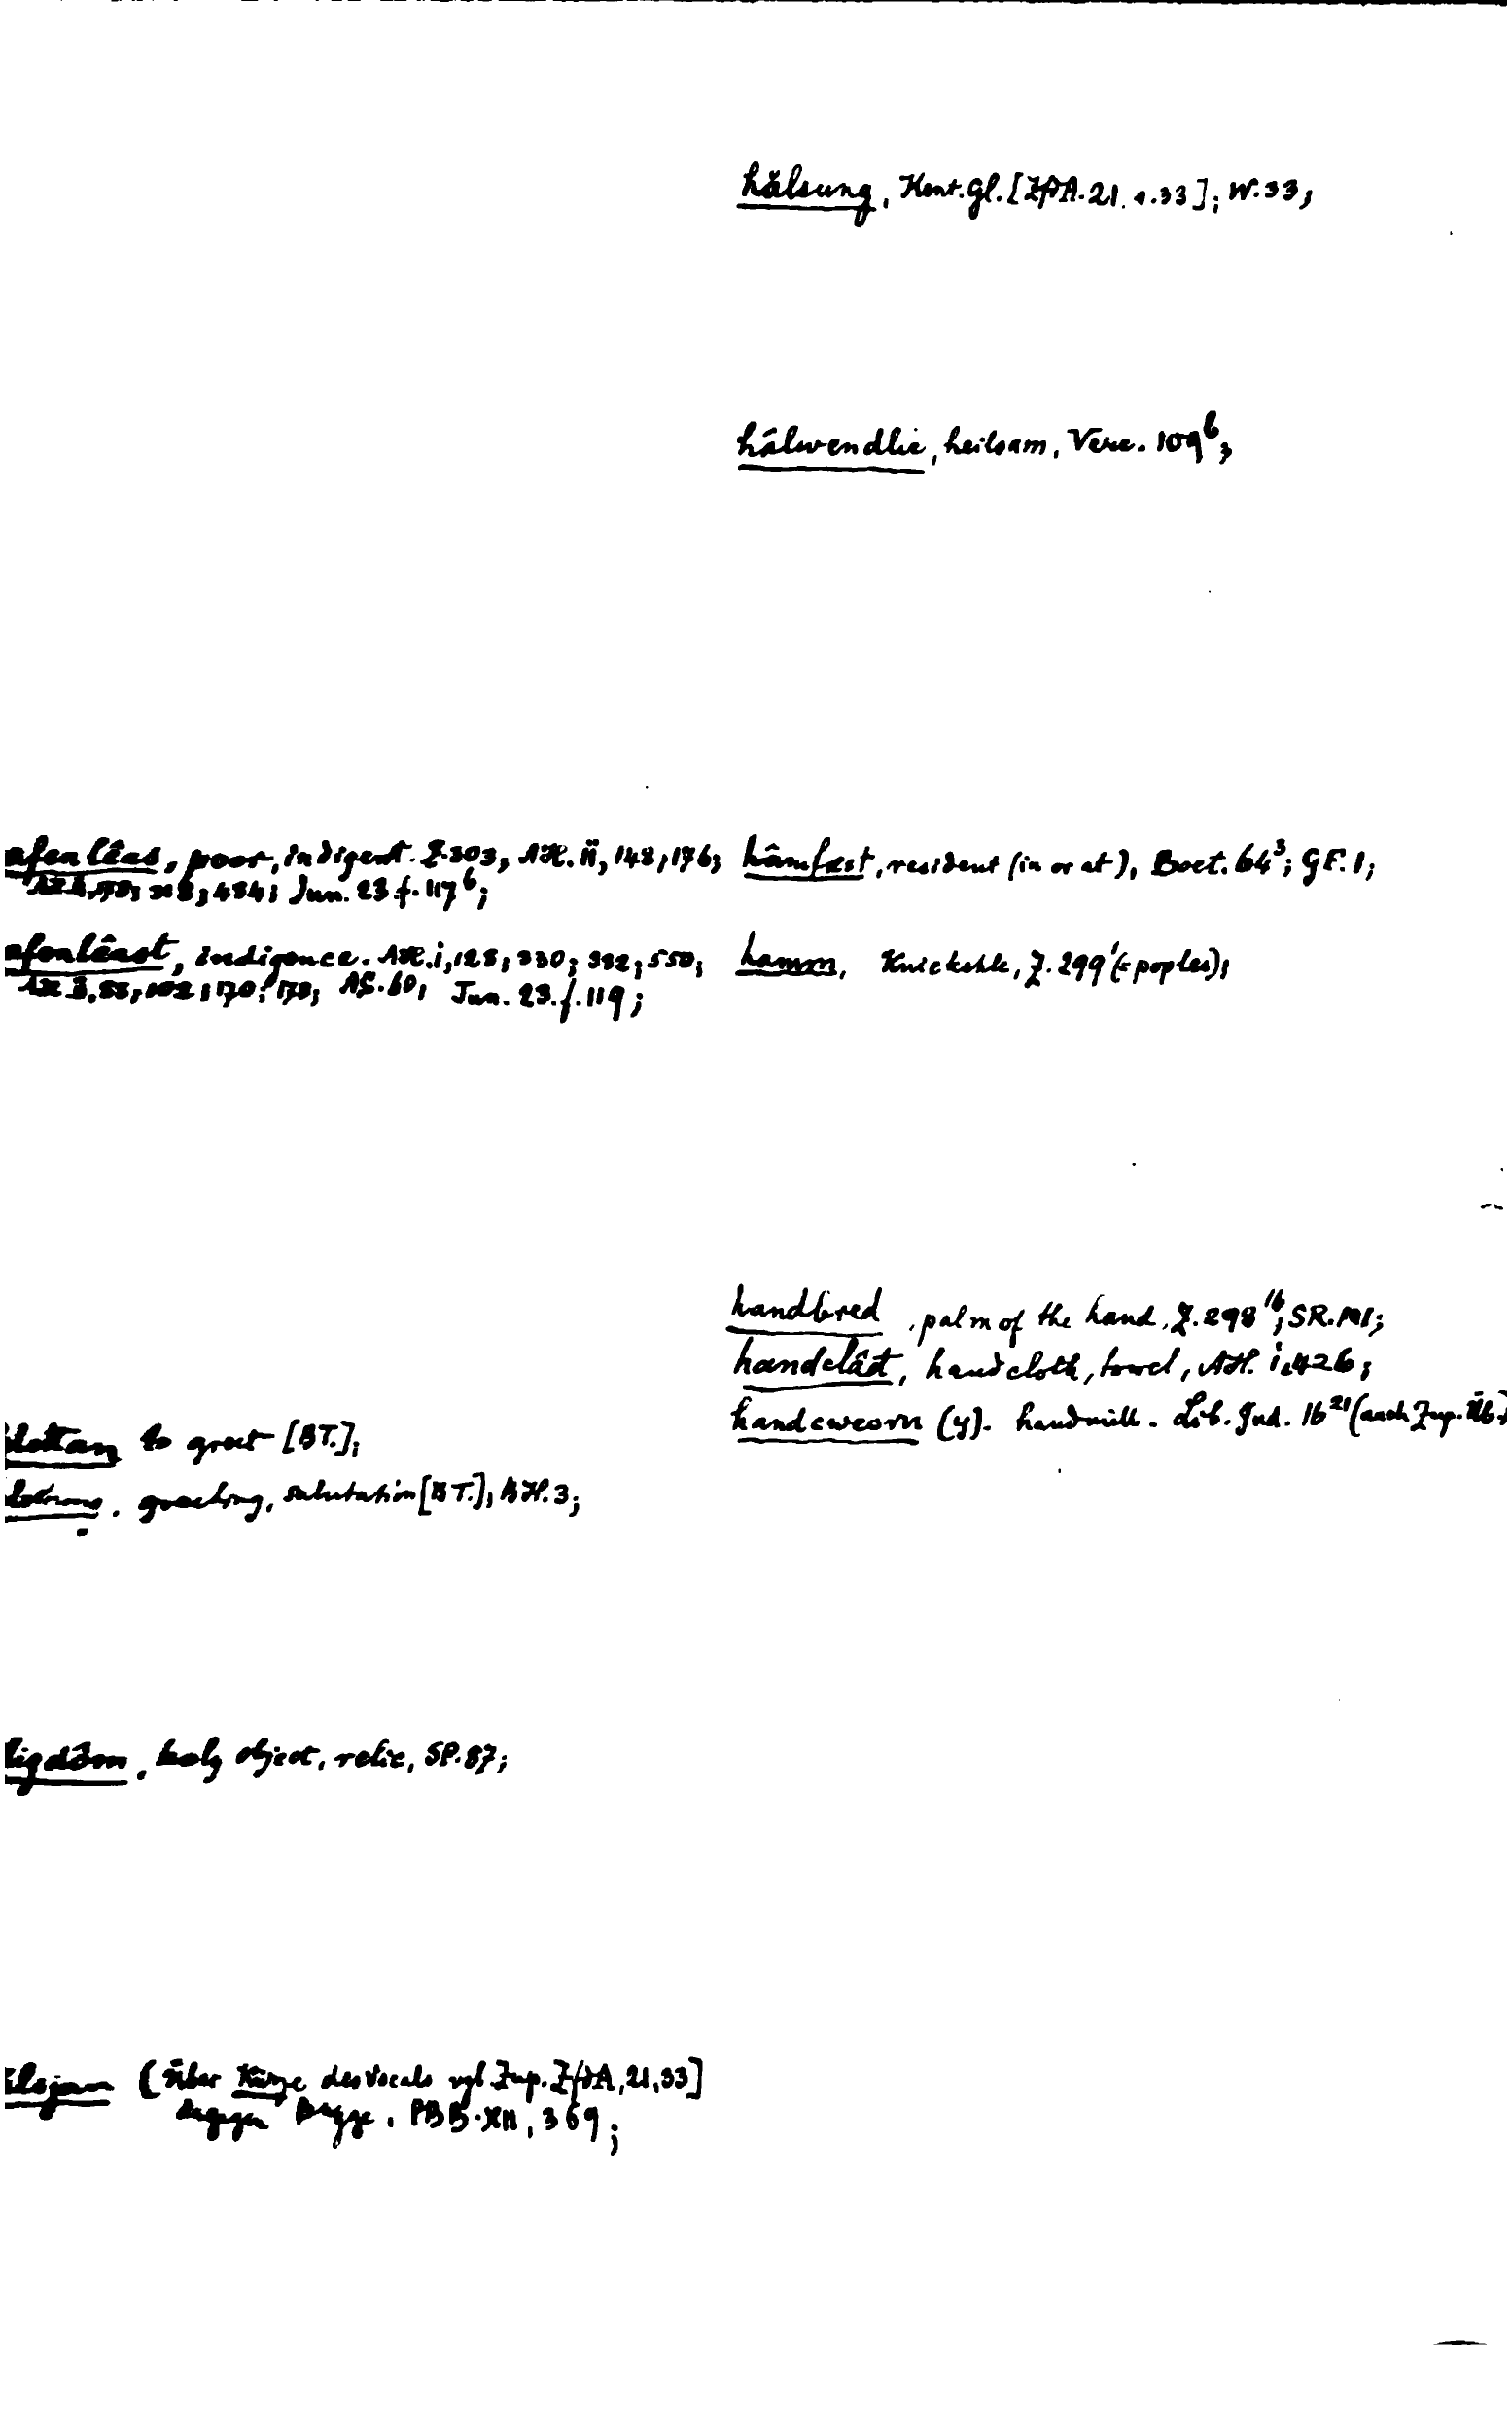 afenlêas, poor, indigent. Z. 303, ÆH. ii, 148, 176;
484; Jun. 23 f. 117 b;
afenlêast, indigence. ÆH. i, 128, 330; 392, 550;
170; 178; AS. 60, Jun. 23. f. 119;
lettan to greet [BT.];
greeting, salutation [BT.], BH. 3;
ligdôm, holy object, relic, SP. 87;
lsjan (über Kürze des Vocals vgl. Zup. ZfdA, 21, 33]
dagegen Bugge, PBB. XII, 369;
hălsung, Kent. Gl. [ZfdA. 21. s. 33]; W. 33,
hâlwendlic, heilsam, Verc. 109 b;
hâmfæst, resident (in or at), Boet. 64 3; GF. 1;
hamm, Kniekehle, Z. 299 1 (poples);
handbred, palm of the hand, Z. 298 16; SR. 101;
handclât, handcloth, towel, ÆH. i, 426;
handcweorn (y). handmill. Lib. Jud. 16 21 (auch Zup. Üb.